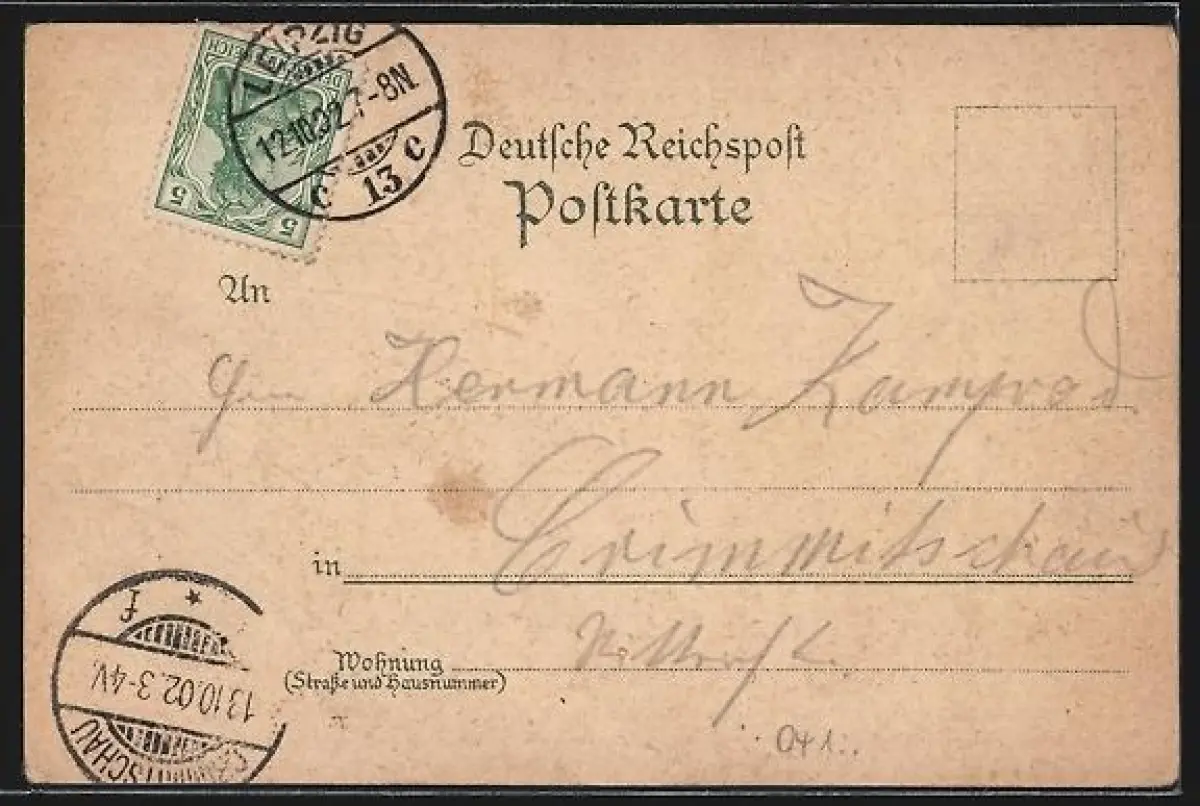 DEUTSCHES REICH
5 5
LEIPZIG
12.10.02.7-8N
C 13 C
Deutsche Reichspost
Postkarte
An
Herrn Hermann Zamprod
in Crimmitschau
Wohnung
(Straße und Hausnummer)
f *
13.10.02.3-4V.
CRIMMITSCHAU
041.